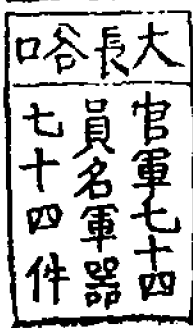 大長谷口
官軍七十四
員名軍器
七十四件